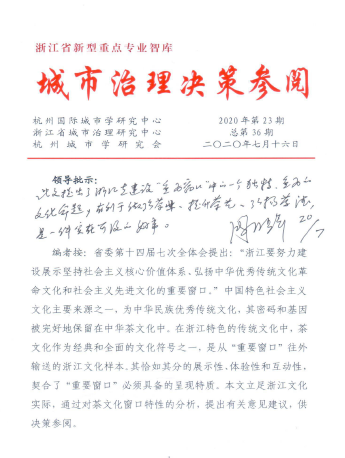 浙江省新型重点专业智库
城市治理决策参阅
杭州国际城市学研究中心
浙江省城市治理研究中心
杭州城市学研究会
2020年第23期
总第36期
二〇二〇年七月十六日
领导批示：
此文提出了浙江建设“重要窗口”中一个独特、重要的
是一件实在可为的好事。
20/7
编者按：省委第十四届七次全体会提出：“浙江要努力建
设展示坚持社会主义核心价值体系、弘扬中华优秀传统文化革命
文化和社会主义先进文化的重要窗口。”中国特色社会主义
文化主要来源之一，为中华民族优秀传统文化，其密码和基因
被完好地保留在中华茶文化中。在浙江特色的传统文化中，茶
文化作为经典和全面的文化符号之一，是从“重要窗口”往外
输送的浙江文化样本。其恰如其分的展示性、体验性和互动性，
契合了“重要窗口”必须具备的呈现特质。本文立足浙江文化
实际，通过对茶文化窗口特性的分析，提出有关意见建议，供
决策参阅。